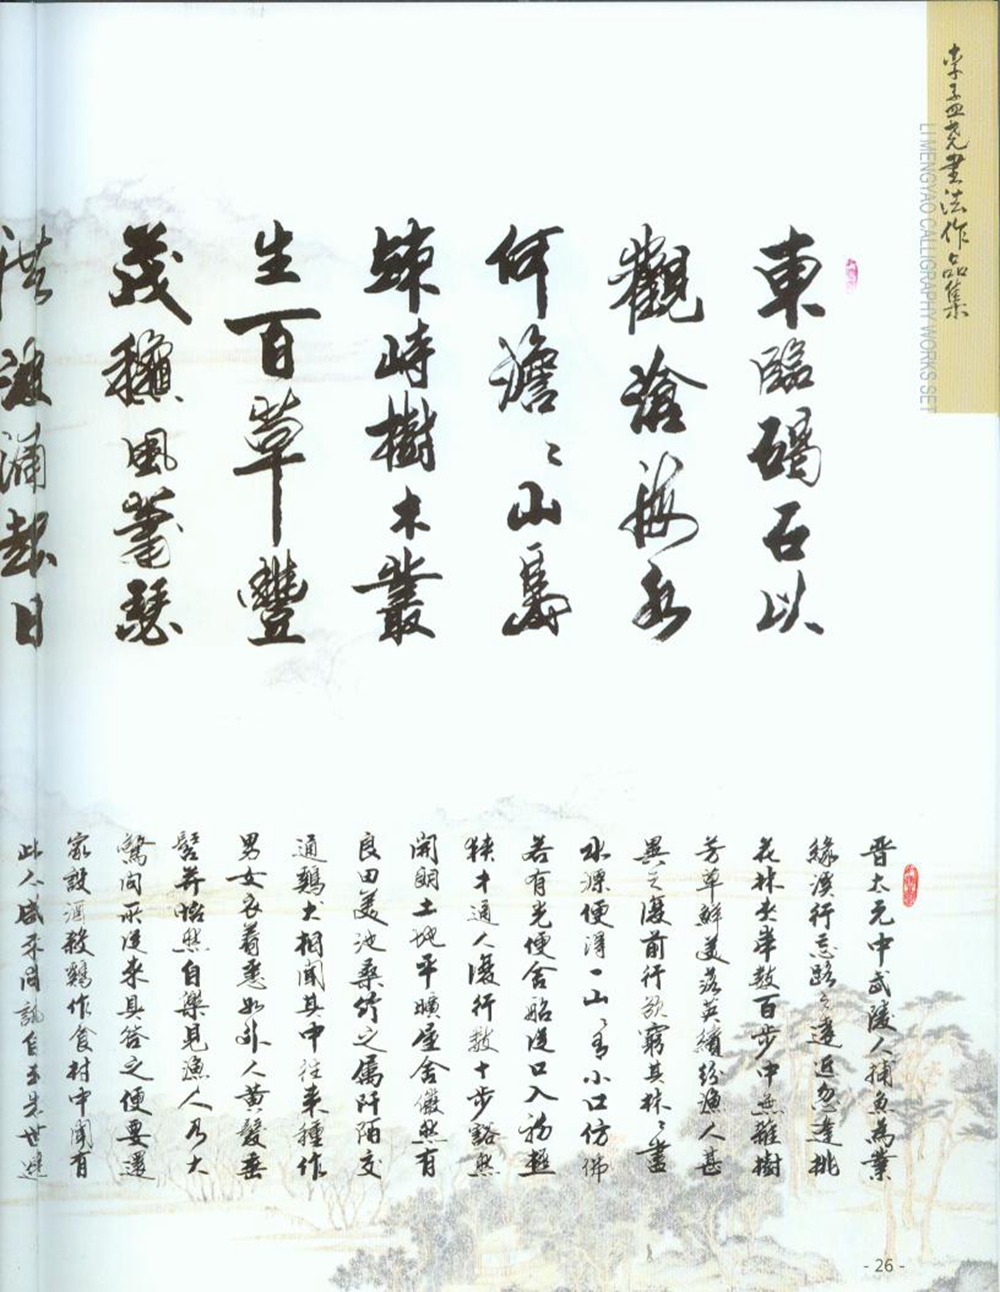 李孟尧書法作品集
LI MENGYAO CALLIGRAPHY WORKS SET
東臨碣石以
觀滄海水
何澹〻山島
竦峙樹木叢
生百草豐
茂穐風蕭瑟
洪波涌起日
晋太元中武陵人捕魚為業
緣溪行忘路之遠近忽逢桃
花林夾岸數百步中無雜樹
芳草鮮美落英繽紛漁人甚
異之復前行欲窮其林〻盡
水源便得一山〻有小口仿佛
若有光便舍船從口入初極
狹才通人復行數十步豁然
開朗土地平曠屋舍儼然有
良田美池桑竹之屬阡陌交
通鷄犬相聞其中往来種作
男女衣着悉如外人黄髮垂
髫并怡然自樂見漁人乃大
驚问所從来具答之便要還
家設酒殺鷄作食村中聞有
此人咸来问訊自云先世避
- 26 -